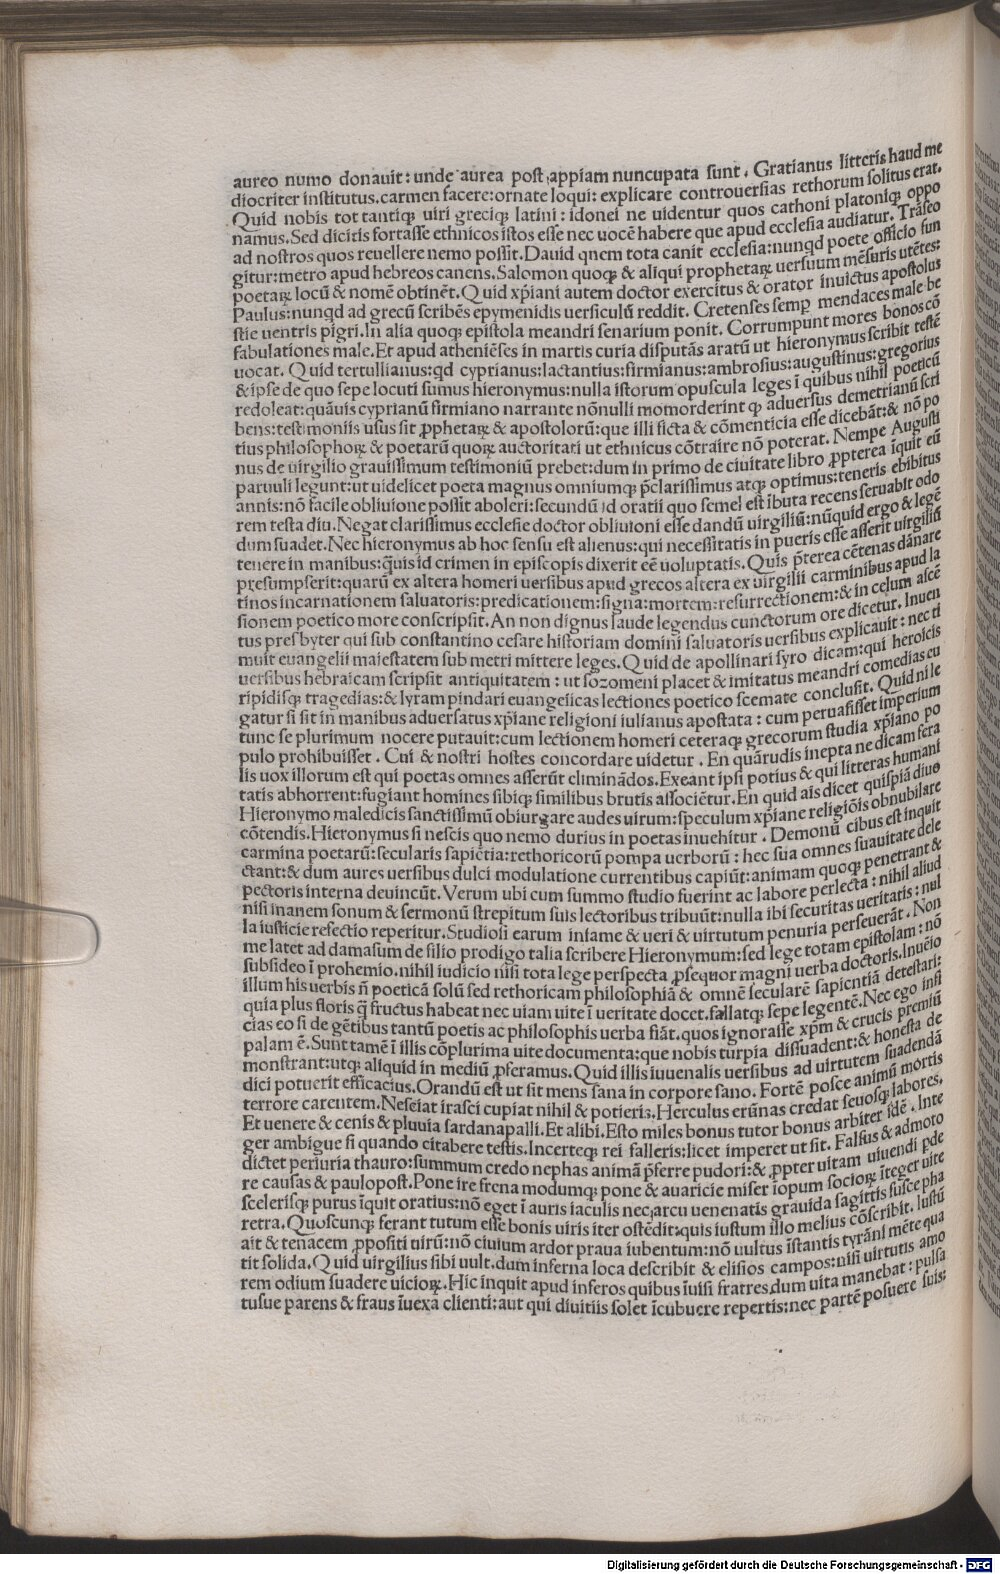 aureo numo donauit: unde aurea post appiam nuncupata sunt. Gratianus litteris haud me
diocriter institutus. carmen facere: ornate loqui: explicare controuersias rethorum solitus erat.
Quid nobis tot tantiqꝫ uiri greciqꝫ latini: idonei ne uidentur quos cathoni platoniqꝫ oppo
namus. Sed dicitis fortasse ethnicos istos esse nec uocē habere que apud ecclesia audiatur. Trāseo
ad nostros quos reuellere nemo possit. Dauid quem tota canit ecclesia: nunqd poete officio fun
gitur: metro apud hebreos canens. Salomon quoqꝫ & aliqui prophetaꝝ uersuum mēsuris utētes:
poetaꝝ locū & nomē obtinēt. Quid xp̄iani autem doctor exercitus & orator inuictus apostolus
Paulus: nunqd ad grecū scribēs epymenidis uersiculū reddit. Cretenses semꝑ mendaces male be
stie uentris pigri. In alia quoqꝫ epistola meandri senarium ponit. Corrumpunt mores bonos cō
fabulationes male. Et apud atheniēses in martis curia disputās aratū ut hieronymus scribit testē
uocat. Quid tertullianus: qd cyprianus: lactantius: firmianus: ambrosius: augustinus: gregorius
& ipse de quo sepe locuti sumus hieronymus: nulla istorum opuscula leges ī quibus nihil poeticū
redoleat: quāuis cyprianū firmiano narrante nōnulli momorderint qꝫ aduersus demetrianū scri
bens: testimoniis usus sit ꝓphetaꝝ & apostolorū: que illi ficta & cōmenticia esse dicebāt: & nō po
tius philosophoꝝ & poetarū quoꝝ auctoritati ut ethnicus cōtraire nō poterat. Nempe Augusti
nus de uirgilio grauissimum testimoniū prebet: dum in primo de ciuitate libro ꝓpterea īquit eū
paruuli legunt: ut uidelicet poeta magnus omniumqꝫ p̄clarissimus atqꝫ optimus: teneris ebibitus
annis: nō facile obliuione possit aboleri: secundū id oratii quo semel est ībuta recens seruabit odo
rem testa diu. Negat clarissimus ecclesie doctor obliuioni esse dandū uirgiliū: nūquid ergo & legē
dum suadet. Nec hieronymus ab hoc sensu est alienus: qui necessitatis in pueris esse asserit uirgiliū
tenere in manibus: q̄uis id crimen in episcopis dixerit eē uoluptatis. Quis p̄terea cētenas dānare
presumpserit: quarū ex altera homeri uersibus apud grecos altera ex uirgilii carminibus apud la
tinos incarnationem saluatoris: predicationem: signa: mortem: resurrectionem: & in celum ascē
sionem poetico more conscripsit. An non dignus laude legendus cunctorum ore dicetur. Inuen
tus presbyter qui sub constantino cesare historiam domini saluatoris uersibus explicauit: nec ti
muit euangelii maiestatem sub metri mittere leges. Quid de apollinari syro dicam: qui heroicis
uersibus hebraicam scripsit antiquitatem: ut sozomeni placet & imitatus meandri comedias eu
ripidisqꝫ tragedias: & lyram pindari euangelicas lectiones poetico scemate conclusit. Quid ni le
gatur si sit in manibus aduersatus xp̄iane religioni iulianus apostata: cum peruasisset imperium
tunc se plurimum nocere putauit: cum lectionem homeri ceteraqꝫ grecorum studia xp̄iano po
pulo prohibuisset. Cui & nostri hostes concordare uidetur. En quārudis inepta ne dicam fera
lis uox illorum est qui poetas omnes asserūt eliminādos. Exeant ipsi potius & qui litteras humani
tatis abhorrent: fugiant homines sibiqꝫ similibus brutis associētur. En quid ais dicet quispiā diuo
Hieronymo maledicis sanctissimū obiurgare audes uirum: speculum xp̄iane religiōis obnubilare
cōtendis. Hieronymus si nescis quo nemo durius in poetas inuehitur. Demonū cibus est inquit
carmina poetarū: secularis sapiētia: rethoricorū pompa uerborū: hec sua omnes suauitate dele
ctant: & dum aures uersibus dulci modulatione currentibus capiūt: animam quoqꝫ penetrant &
pectoris interna deuincūt. Verum ubi cum summo studio fuerint ac labore perlecta: nihil aliud
nisi inanem sonum & sermonū strepitum suis lectoribus tribuūt: nulla ibi securitas ueritatis: nul
la iusticie refectio reperitur. Studiosi earum in fame & ueri & uirtutum penuria perseuerāt. Non
me latet ad damasum de filio prodigo talia scribere Hieronymum: sed lege totam epistolam: nō
subsideo ī prohemio. nihil iudicio nisi tota lege perspecta ꝓsequor magni uerba doctoris. Inuēio
illum his uerbis n̄ poeticā solū sed rethoricam philosophiā & omnē secularē sapientiā detestari:
quia plus floris q̄ fructus habeat nec uiam uite ī ueritate docet. fallatqꝫ sepe legentē. Nec ego insi
cias eo si de gētibus tantū poetis ac philosophis uerba fiāt. quos ignorasse xp̄m & crucis premiū
palam ē. Sunt tamē ī illis cōplurima uite documenta: que nobis turpia dissuadent: & honesta de
monstrant: utqꝫ aliquid in mediū ꝓseramus. Quid illis iuuenalis uersibus ad uirtutem suadendā
dici potuerit efficacius. Orandū est ut sit mens sana in corpore sano. Fortē posce animū mortis
terrore carentem. Nesciat irasci cupiat nihil & potieris. Herculus erūnas credat seuosqꝫ labores.
Et uenere & cenis & pluuia sardanapalli. Et alibi. Esto miles bonus tutor bonus arbiter idē. Inte
ger ambigue si quando citabere testis. Incerteqꝫ rei falleris: licet imperet ut sit. Falsus & admoto
dictet periuria thauro: summum credo nephas animā p̄ferre pudori: & ꝓpter uitam uiuendi ꝑde
re causas & paulopost. Pone ire frena modumqꝫ pone & auaricie miser īopum socioꝝ īteger uite
scelerisqꝫ purus īquit oratius: nō eget ī auris iaculis nec; arcu uenenatis grauida sagittis fusce pha
retra. Quoscunqꝫ ferant tutum esse bonis uiris iter ostēdit: quis iustum illo melius cōscribit. Iustū
ait & tenacem ꝓpositi uirū: nō ciuium ardor praua iubentum: nō uultus īstantis tyrāni mēte qua
tit solida. Quid uirgilius sibi uult. dum inferna loca describit & elisios campos: nisi uirtutis amo
rem odium suadere uicioꝝ. Hic inquit apud inferos quibus īuisi fratres. dum uita manebat: pulsa
tusue parens & fraus īnexa clienti: aut qui diuitiis solet īcubuere repertis: nec partē posuere suis:
Digitalisierung gefördert durch die Deutsche Forschungsgemeinschaft - DFG